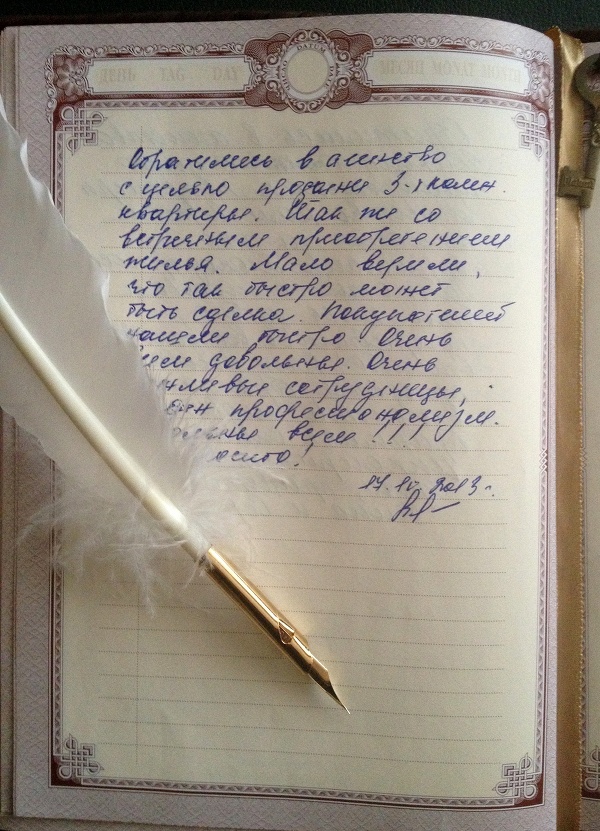 ДЕНЬ TAG DAY
DATUM
МЕСЯЦ MONAT MONTH
Обратились в агенство
с целью продажи 3-х комн.
квартиры. Так же со
встречным приобретением
жилья. Мало верили,
что так быстро может
быть сделка. Покупателей
нашли быстро. Очень
всем довольны. Очень
вежливые сотрудницы,
один профессионализм.
Довольны всем!!!
17. 2013 г.